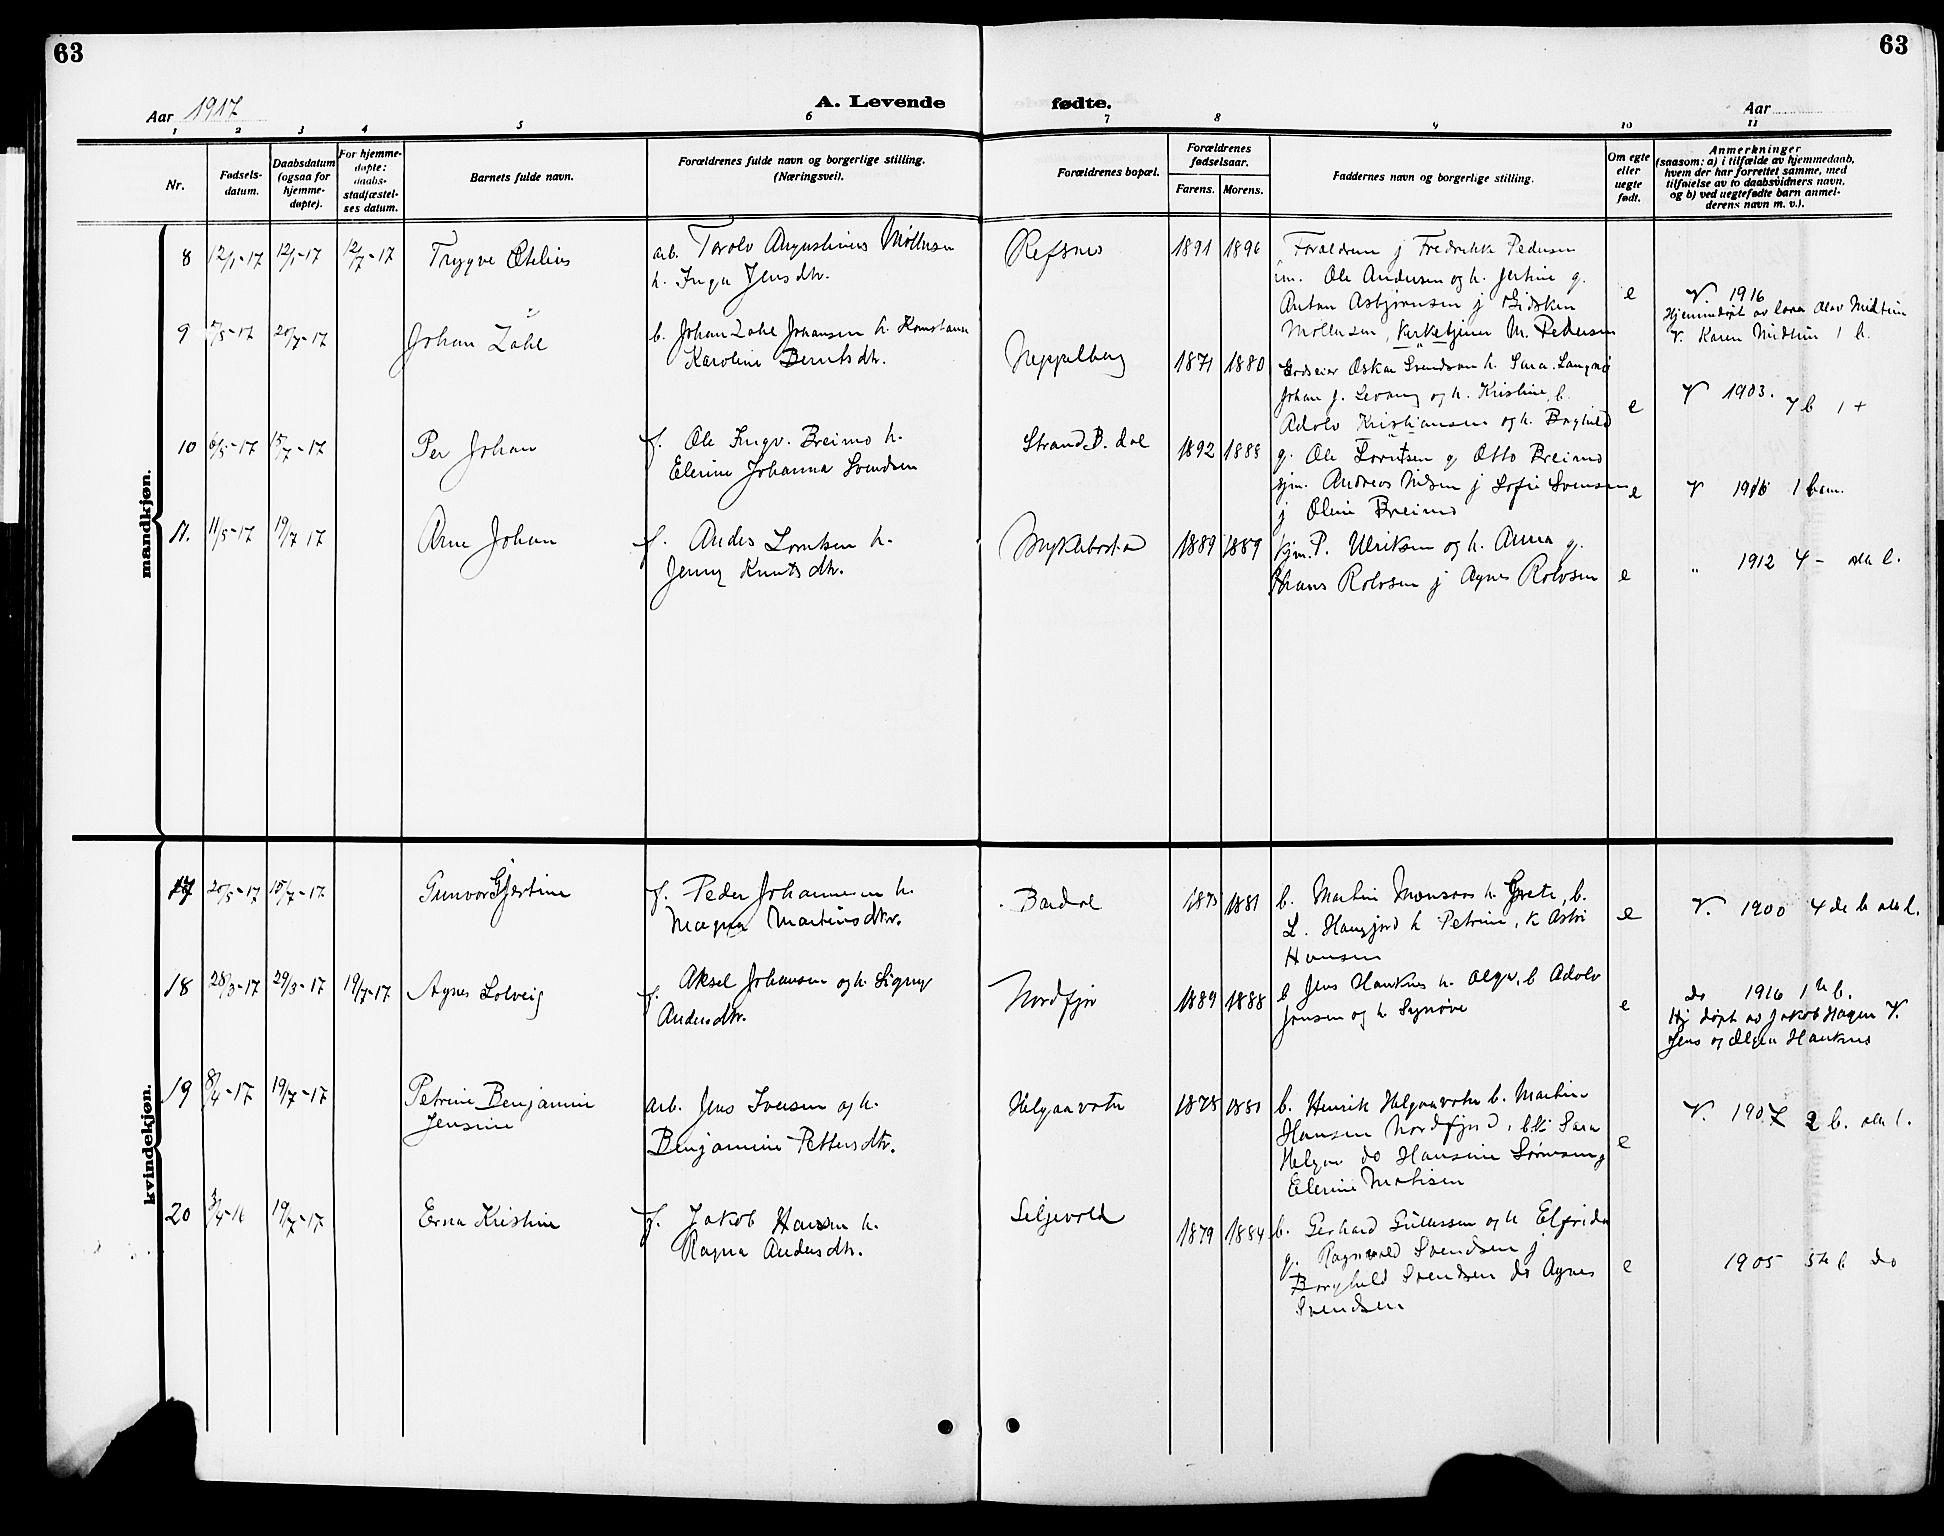 63
63
Aar 1917
A. Levende
fødte.
Aar
1 2 3 4 5 6 7 8 9 10 11
Nr.
Fødsels-
datum.
Daabsdatum
(ogsaa for
hjemme-
døpte).
For hjemme-
døpte:
daabs-
stadfæstel-
ses datum.
Barnets fulde navn.
Forældrenes fulde navn og borgerlige stilling.
(Næringsvei).
Forældrenes bopæl.
Forældrenes
fødselsaar.
Farens. Morens.
Faddernes navn og borgerlige stilling.
Om egte
eller
uegte
født.
Anmerkninger
(saasom: a) i tilfælde av hjemmedaab,
hvem der har forrettet samme, med
tilføielse av to daabsvidners navn,
og b) ved uegtefødte barn anmel-
derens navn m. v.).
mandkjøn.
8 12/1-17 12/1-17 12/7-17
Trygve Otelius
arb. Torolv Augustinus Møllersen
h. Inga Jensdtr.
Refsnes
1891 1896
Forældrene j Fredrikke Pedersen
im. Ole Andersen og h. g.
Anton Asbjørnsen j Gidsken
Møllersen, Kirketjener M. Pedersen
e
V. 1916
Hjemmedøpt av Olav Midttun
V. Karen Midttun 1 b.
9 /5-17 20/7-17
Johan Zahl
b. Johan Zahl Johansen h. Konstanse
Karoline Berntsdtr.
Neppelberg
1871 1880
Oskar Svendsen h. Sara
Johan j. og h. Kristine, b.
Adolv Kristiansen og h. Borghild
e
V 1903.
7 b 1 +
10 6/5-17 15/7-17
Per Johan
f. Ole Ingv. Breimo h.
Elerine Johanna Svendsen
Strand B. dal
1892 1888
g. Ole Lorntsen g Otto Breimo
Andreas Nilsen j Sofie Svensen
j Oline Breimo
e
V 1916 1 barn.
11. 11/5-17 19/7 17
Arne Johan
f. Anders Lorntsen h.
Jenny Knutsdtr.
Myklebostad
1889 1889
kjm. P. Ulriksen og h. Anna g.
Johans Rolvsen j Agnes Rolvsen
e
" 1912 4 - alle l.
kvindekjøn.
17 20/5-17 15/7-17
Gunvor Gjertine
f. Peder Johannesen h.
Magna Martinsdtr.
Bardal
1875 1881
b. Martin Monsaas h. Grete, b.
L. Haugfjord h Petrine, k
Hansen
e
V. 1900 4 de b alle l.
18 28/3-17 29/3-17 19/7-17
Agnes Solveig
f. Aksel Johansen og h. Signy
Andersdtr.
Nordfjor
1889 1888
b Jens Hauknes h. Olga, b Adolv
Jensen og h. Synøve
e
do 1916 1 ste b.
Hj døpt av Jakob Hagen V.
Jens og Olga Hauknes
19 8/4-17 19/7-17
Petrine Benjamine
Jensine
arb. Jens Iversen og h.
Benjamine Pettersdtr.
Helgaavatn
1878 1880
b. Henrik Helgaavatn b. Martin
Hansen Nordfjord, Sara
Helgaa do Hansine Sørensen j
Elerine Matisen
e
V. 1907 2 b. alle l.
20 3/4-16 19/7-17
Erna Kristine
f. Jakob Hansen h.
Ragna Andersdtr.
Seljevold
1879 1884
b. Gerhard og h Elfrida
g. Ragnvald Svendsen j
Borghild Svendsen do Agnes
Svendsen
e
1905 5te b do